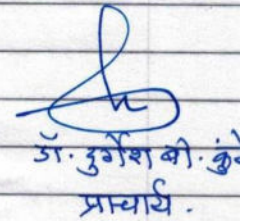 डॉ. दुर्गेश बी.
प्राचार्य.